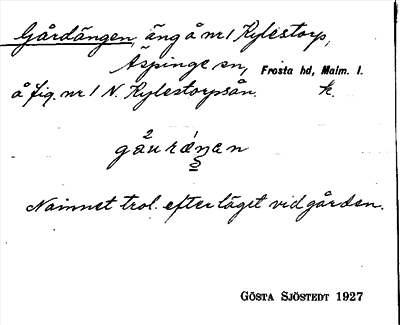 Gårdängen, äng å nr 1 Kylestorp,
Äspinge sn, Frosta hd, Malm. l.
å fig. nr 1 N. Kylestorpsån. k.
2 1
gåuræŋan
Namnet trol. efter läget vid gården.
GÖSTA SJÖSTEDT 1927